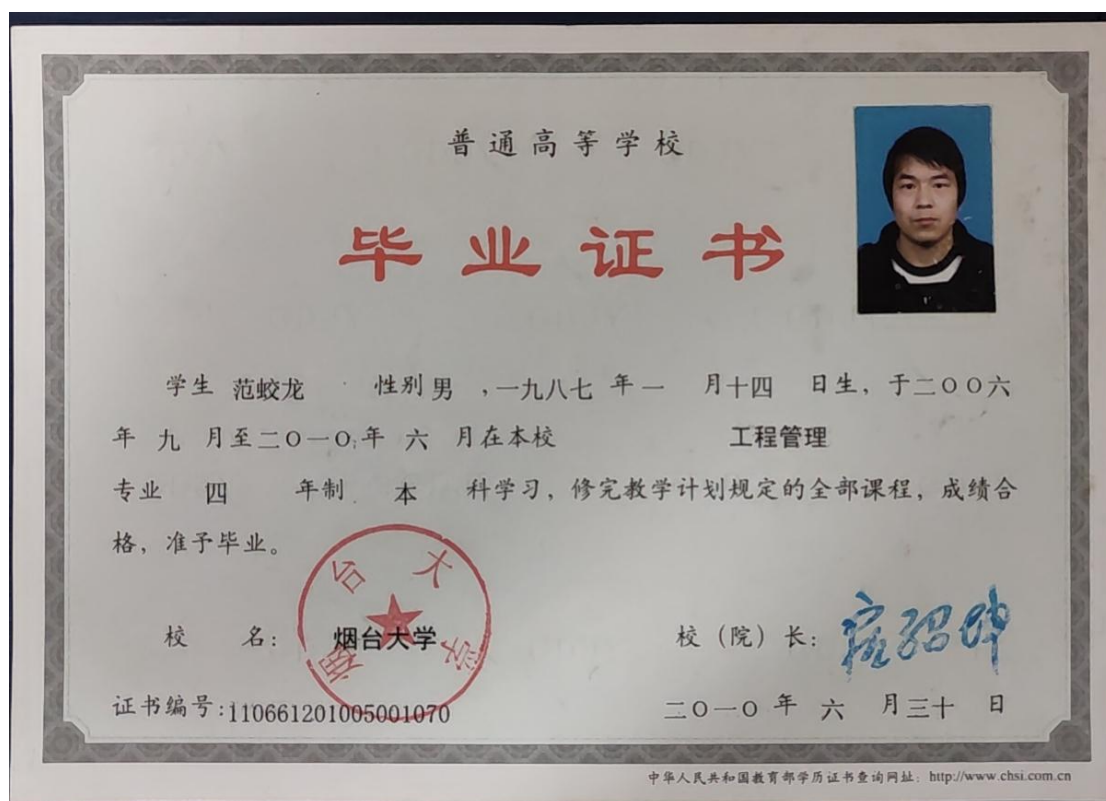 普通高等学校
毕业证书
学生 范蛟龙 性别 男 ,一九八七 年 一 月十四 日生, 于二〇〇六
年 九 月至二〇一〇年 六 月在本校 工程管理
专业 四 年制 本 科学习, 修完教学计划规定的全部课程, 成绩合
格, 准予毕业。
烟台大学
校 名: 烟台大学 校 (院) 长:
证书编号:110661201005001070 二〇一〇 年 六 月三十 日
中华人民共和国教育部学历证书查询网址: http://www.chsi.com.cn